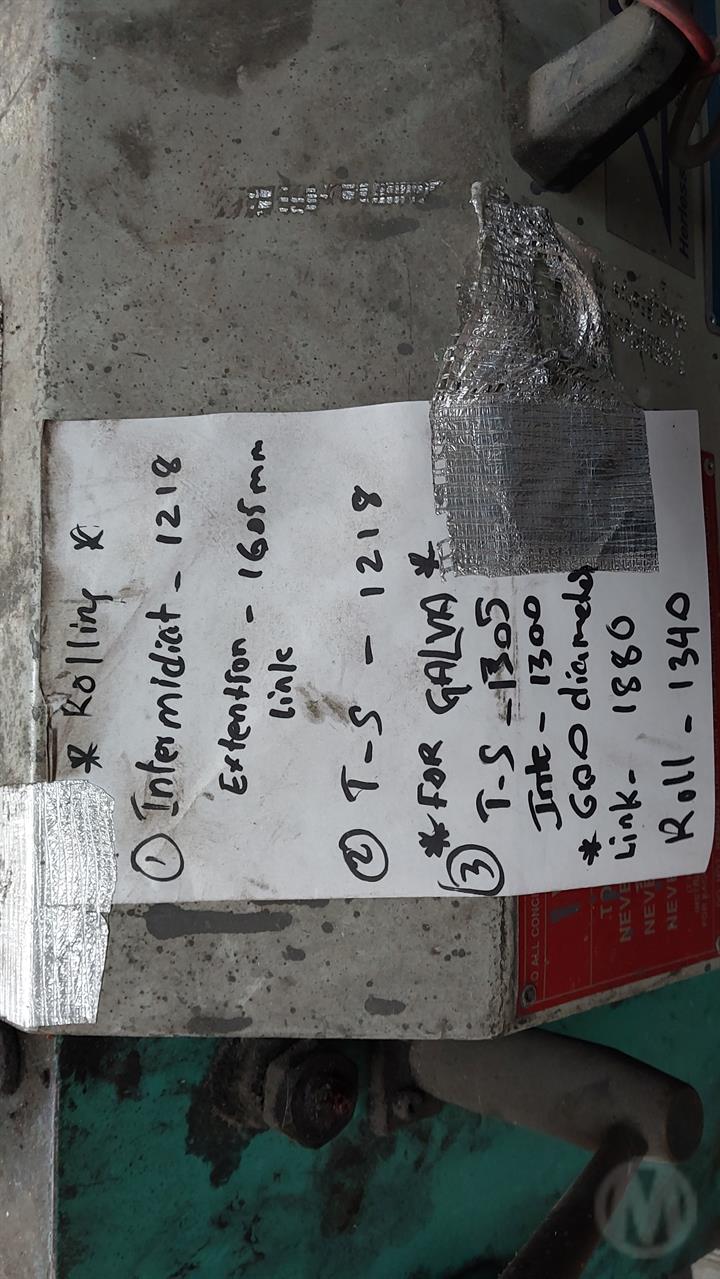 * Rolling *
① Intermidiat - 1218
Extention - 1605mm
Link
② T-S - 1218
* FOR GALVA *
③ T-S - 1305
Inte - 1300
* 600 diameter
Link - 1880
Roll - 1340
O ALL CONC
NEVE
NEVE
NEVE
M